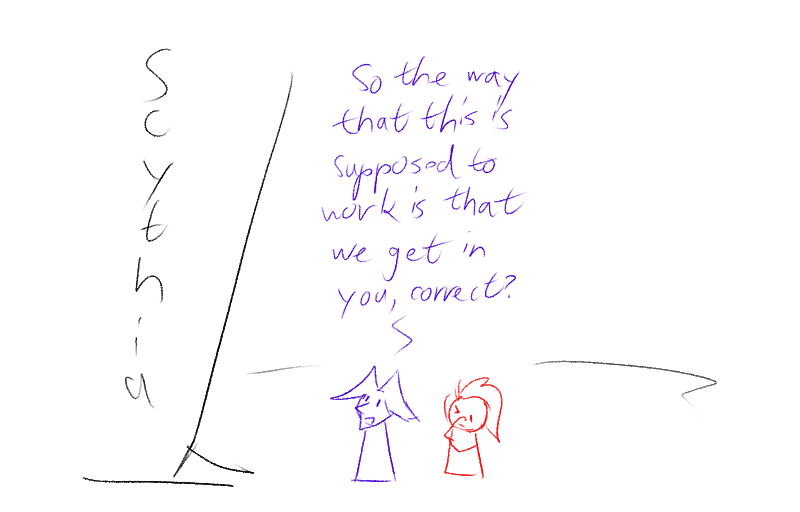 Scythia
So the way
that this is
supposed to
work is that
we get in
you, correct?